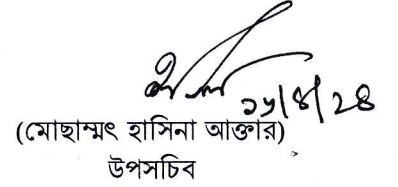 ১৮/৪/২৪
(মোছাম্মৎ হাসিনা আক্তার)
উপসচিব